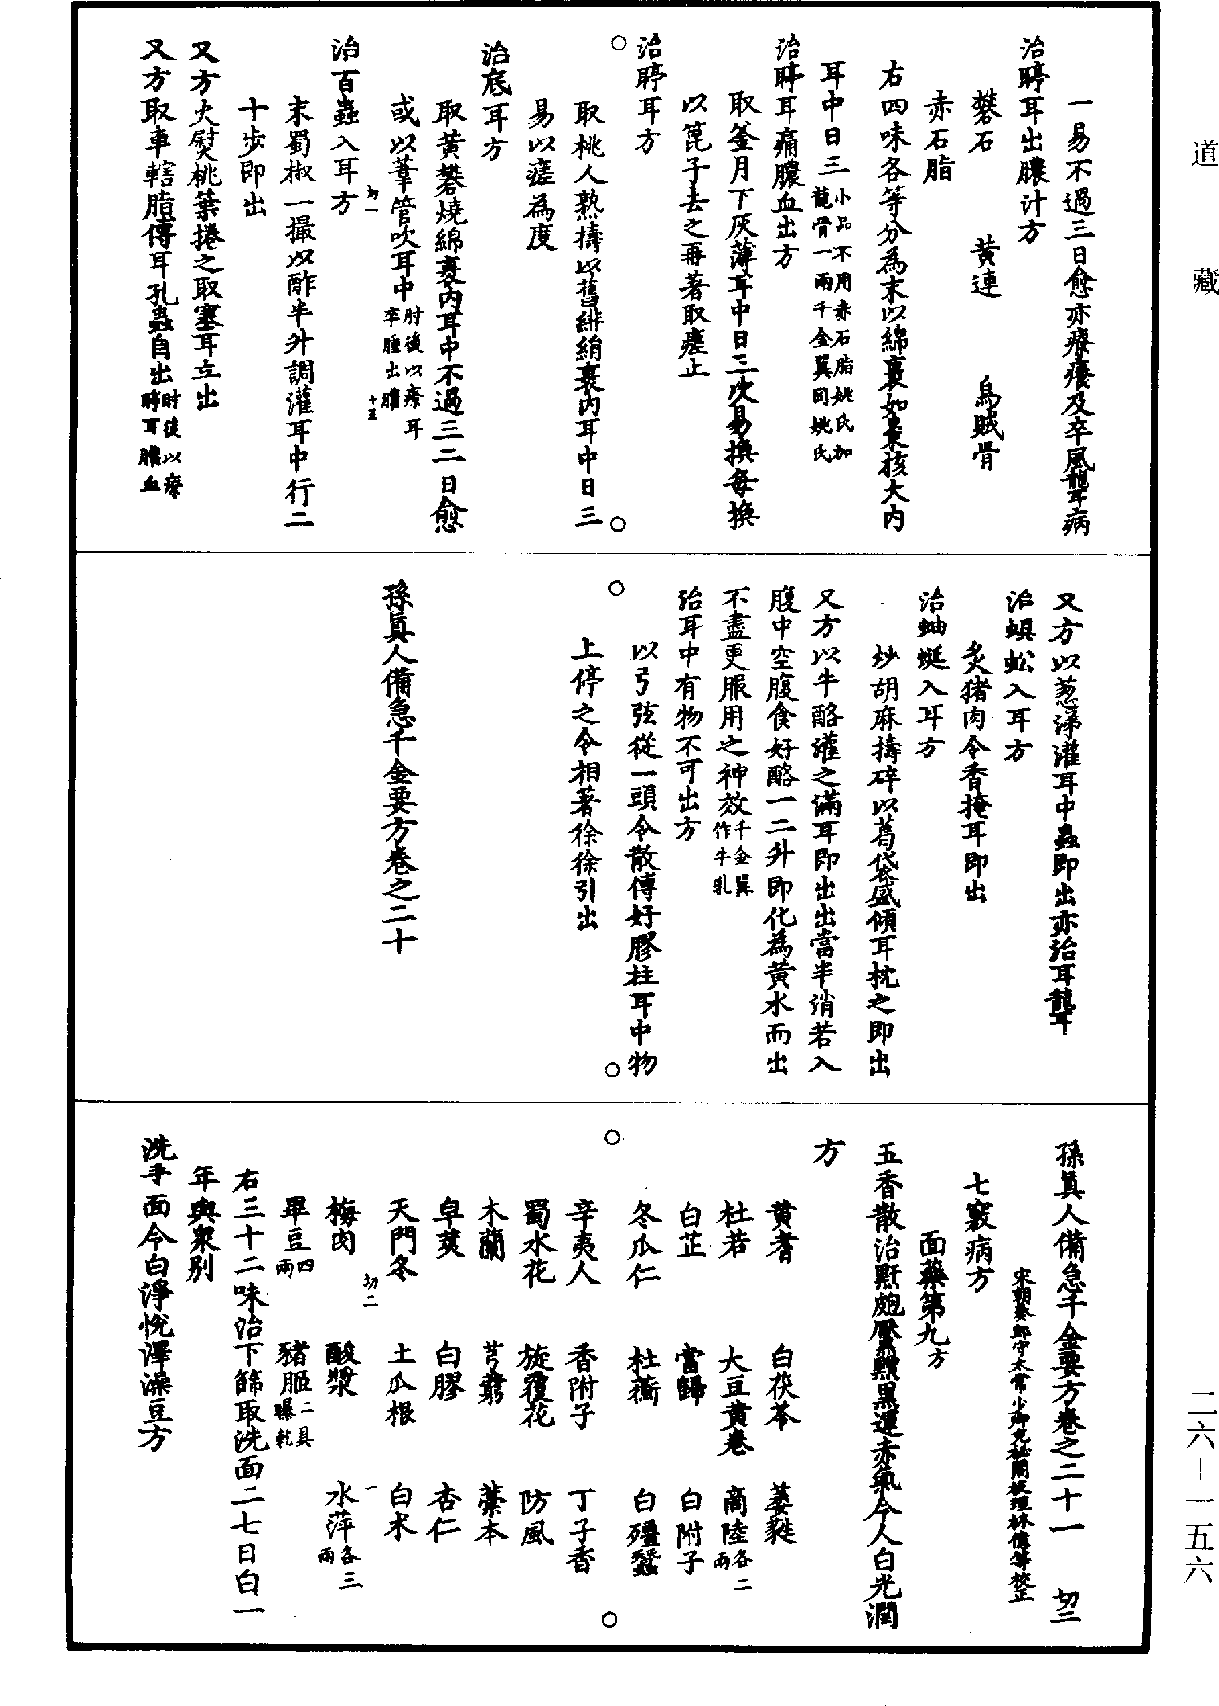 道藏
一易不過三日愈亦療癢及卒風聾耳病
治聤耳出膿汁方
礬石　黃連　烏賊骨
赤石脂
右四味各等分為末以綿裹如棗核大內
耳中日三小品不用赤石脂姚氏加龍骨一兩千金翼同姚氏
治聤耳痛膿血出方
取釜月下灰薄耳中日三次易換每換
以篦子去之再著取瘥止
治聤耳方
取桃人熟擣以舊緋絹裹內耳中日三
易以瘥為度
治底耳方
取黃礬燒綿裹內耳中不過三二日愈
或以葦管吹耳中肘後以療耳卒腫出膿
治百蟲入耳方
末蜀椒一撮以酢半升調灌耳中行二
十步即出
又方火熨桃葉捲之取塞耳立出
又方取車轄脂傅耳孔蟲自出肘後以療聤耳膿血
又方以葱涕灌耳中蟲即出亦治耳聾
治蜈蚣入耳方
炙猪肉令香掩耳即出
治蚰蜒入耳方
炒胡麻擣碎以葛袋盛傾耳枕之即出
又方以牛酪灌之滿耳即出出當半消若入
腹中空腹食好酪一二升即化為黃水而出
不盡更服用之神效千金翼作牛乳
治耳中有物不可出方
以弓弦從一頭令散傅好膠柱耳中物
上停之令相著徐徐引出
孫真人備急千金要方卷之二十
孫真人備急千金要方卷之二十一　切三
宋朝奉郎守太常少卿充秘閣校理林億等校正
七竅病方
面藥第九方
五香散治䵟皰黶䵳黑運赤氣令人白光潤
方
黃耆　白茯苓　萎蕤
杜若　大豆黃卷　商陸各二兩
白芷　當歸　白附子
冬瓜仁　杜蘅　白殭蠶
辛夷人　香附子　丁子香
蜀水花　旋覆花　防風
木蘭　芎藭　藁本
皁莢　白膠　杏仁
天門冬　土瓜根　白朮
切二　一
梅肉　酸漿　水萍各三兩
畢豆四兩　猪胰二具曝乾
右三十二味治下篩取洗面二七日白一
年與衆別
洗手面令白淨悅澤澡豆方
二六—一五六